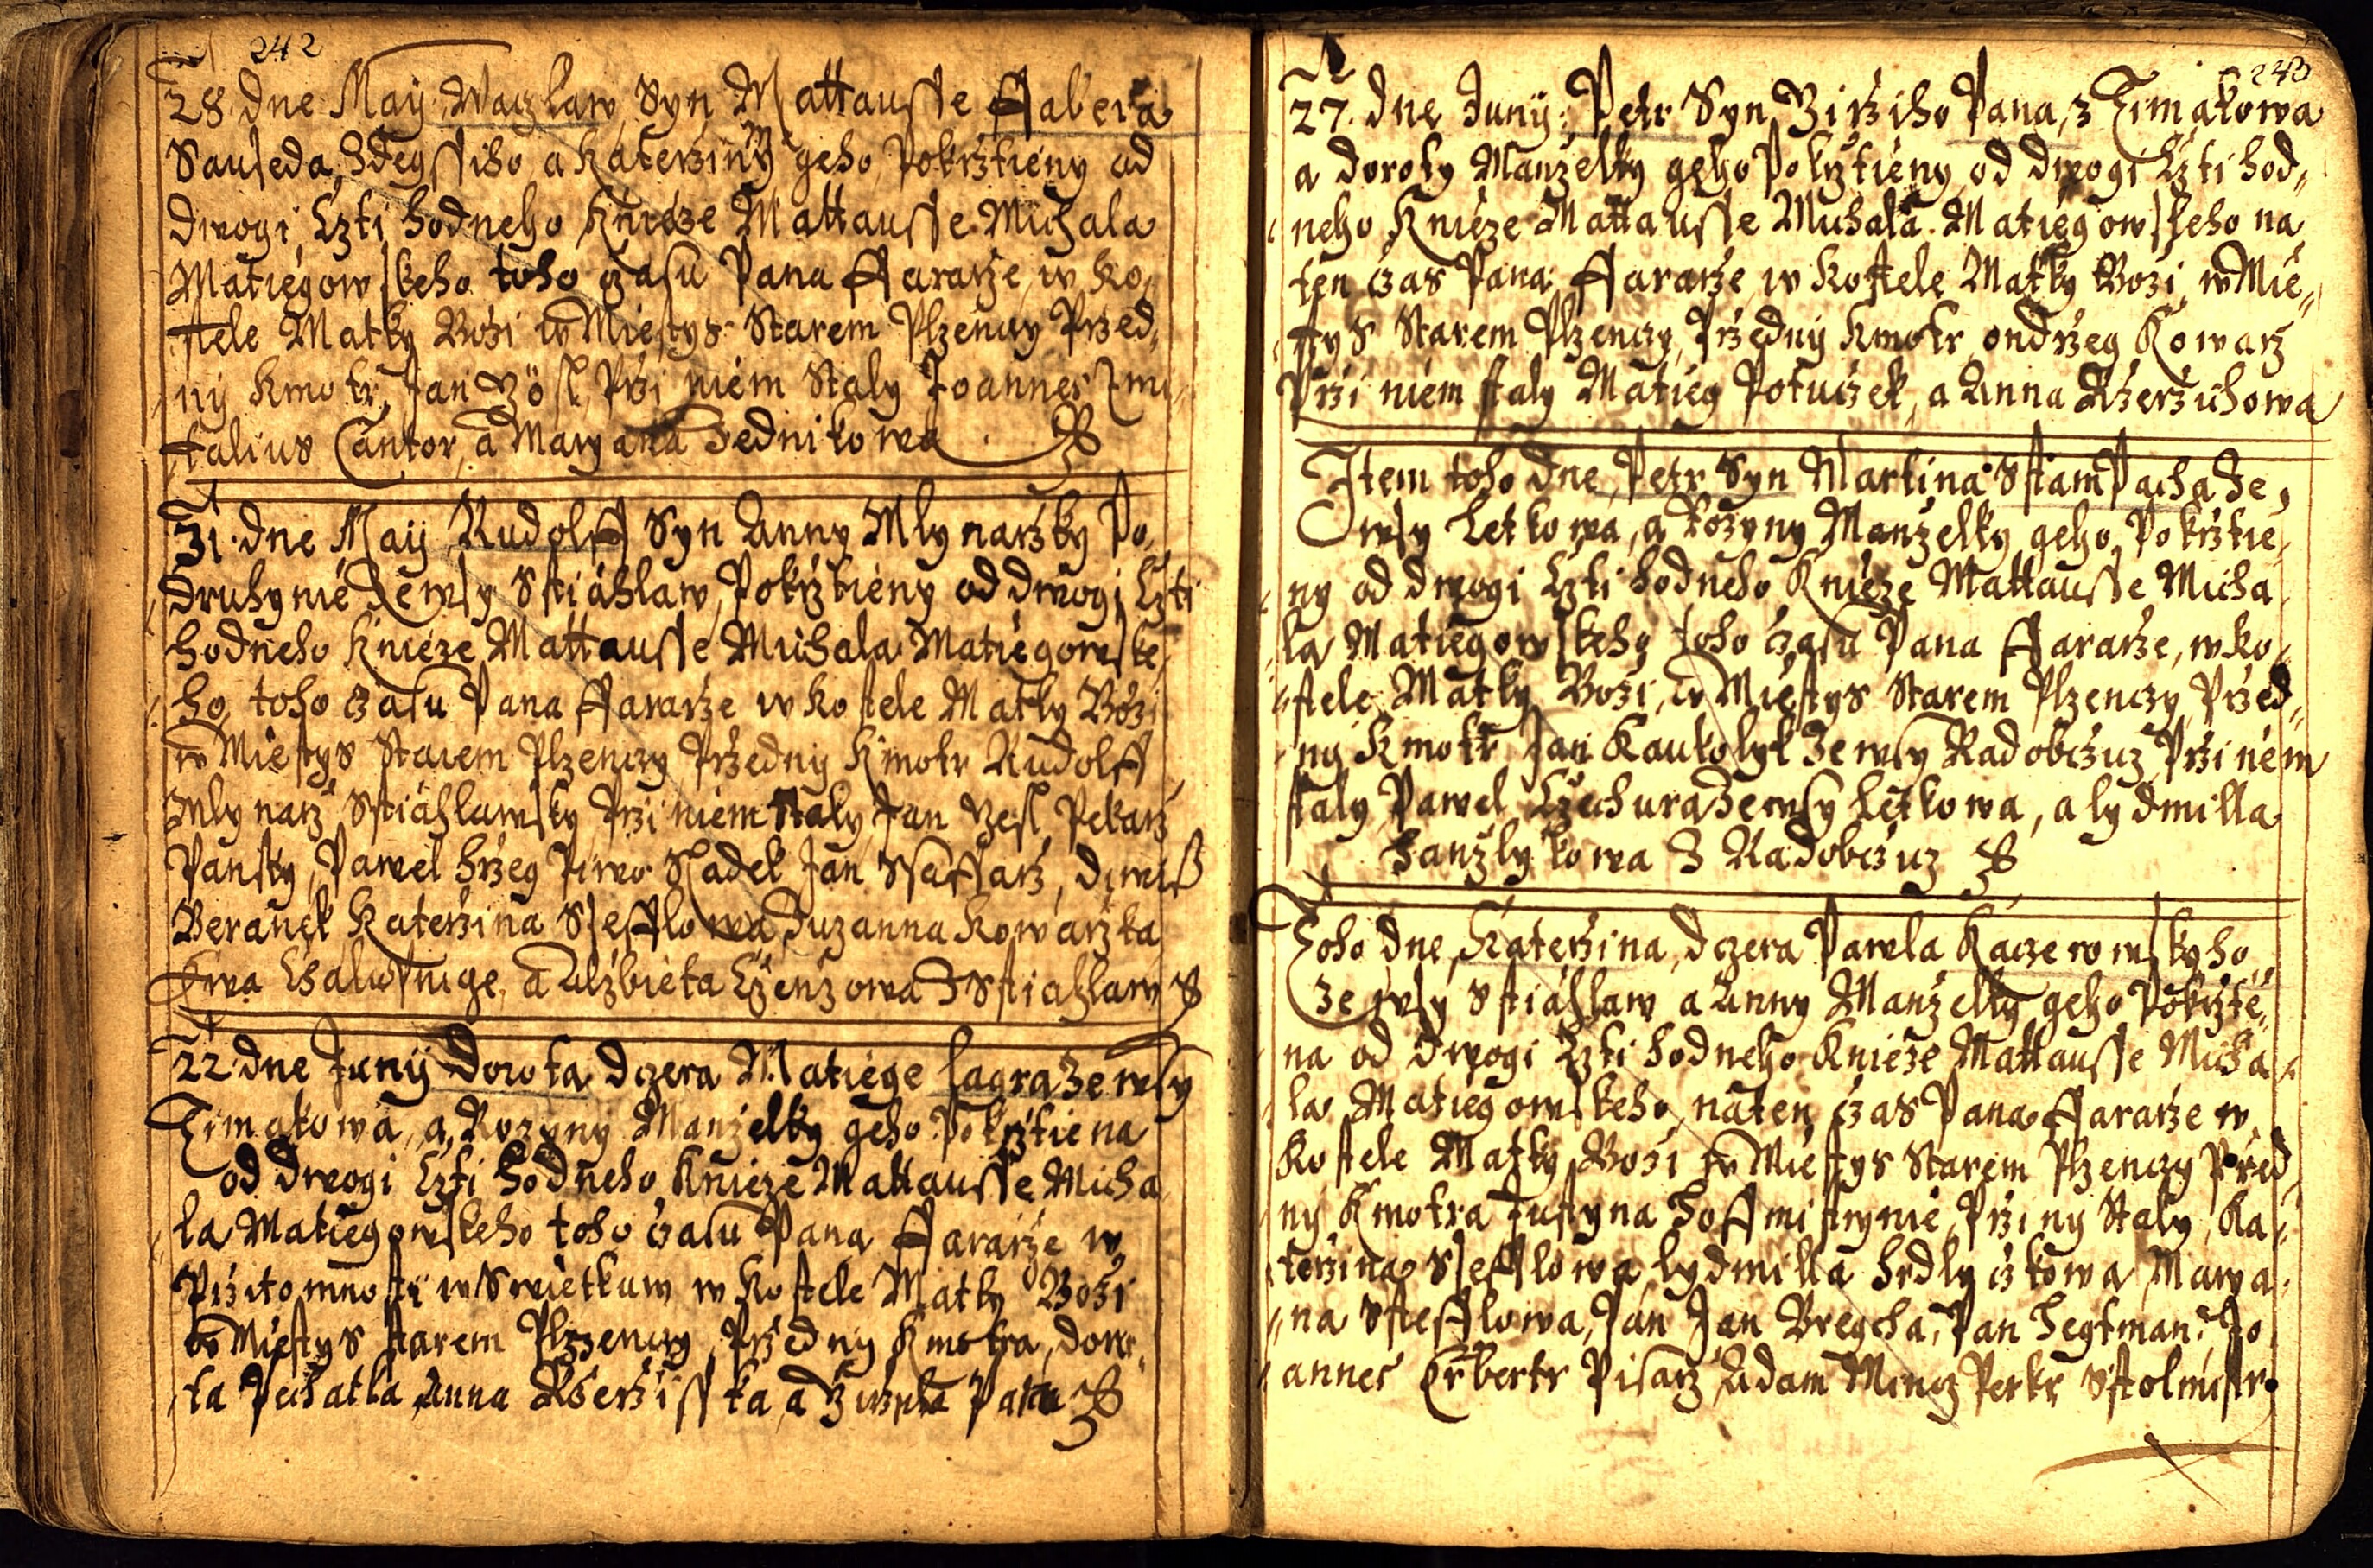 242
28. dne Maÿ Waczlaw Syn Mattausse Ffabera
Sauseda Zdegssiho a Katerziny geho Pokrztieny od
dwogi Czti hodneho Knieze Mattausse Michala
Matiegowskeho toho czasu Pana Ffararze, w Ko,
stele Matky Bozi w Miestys Starem Plzenczy Przed,
ny Kmotr, Jan Przi niem Staly Joannes
Cantor, a Maryana Zednikowa
31. dne Maÿ Rudolff Syn Anny Mlynarzky Po,
druhynie ze wsy Sstiahlaw, Pokrztieny od dwogi Czti
hodneho Knieze Mattausse Michala Matiegowske,
ho, toho czasu Pana Ffararze w Kostele Matky Bozi
w Miestys Starem Plzenczy Przedny Kmotr Rudolff
Mlynarz Sstiahlawsky Przi niem Staly Jan Pekarz
Pansky, Pawel Hrzeg Piwo Sladek Jan Ssaffarz, diwiss
Beranek Katerzina Ssefflowa Zuzanna Kowarzka
Ewa a Alzbieta Z Sstiahlaw
22. dne Junÿ Dorota dczera Matiege Sagra ze wsy
Timakowa, a Rozyny Manzelky geho Pokrztiena
od dwogi Czti hodneho Knieze Mattausse Micha,
la Matiegowskeho toho czasu Pana Ffararze w
Przitomnosti w Swietkuw w Kostele Matky Bozi
w Miestys Starem Plzenczy, Przedny Kmotra, doro,
ta Pechatka Anna a
243
27. dne Junÿ: Petr Syn Girziho Pana, z Timakowa
a doroty Manzelky geho Pokrztieny od dwogi Czti hod,
neho Knieze Mattausse Michala Matiegowskeho na
ten czas Pana Ffararze, w Kostele Matky Bozi w Mie,
stys Starem Plzenczy, Przedny Kmotr ondrzeg Kowarz
Przi niem staly Matieg Potuczek, a Anna Rzerzichowa
Item toho dne, Petr Syn Martina ze,
wsy Letkowa, a Rozyny Manzelky geho, Pokrztie,
ny od dwogi Czti hodneho Knieze Mattausse Micha,
la Matiegowskeho toho czasu Pana Ffararze, w ko,
stele Matky Bozi, w Miestys Starem Plzenczy, Przed,
ny Kmotr Jan Kaukolyk ze wsy Radobczicz Przi nem
staly Pawel Czechura ze wsy Letkowa, a lydmilla
Hanzlykowa Z Radobczicz
Toho dne, Katerzina, dczera Pawla Kaczerowskyho
ze wsy Sstiahlaw a Anny Manzelky geho Pokrzte,
na od dwogi Czti hodneho Knieze Mattausse Micha,
la Matiegowskeho, na ten czas Pana Ffararze w
Kostele Matky Bozi w Miestys Starem Plzenczy Przed,
ny Kmotra Justyna Hoffmistrynie, Przi ny Staly Ka,
terzina Ssefflowa, lydmilla Hrdlyczkowa Marya,
na Sstefflowa, Pan Jan Bregcha, Pan Hegtman, Jo,
annes Erbertr Pisarz Adam Sstolmistr.